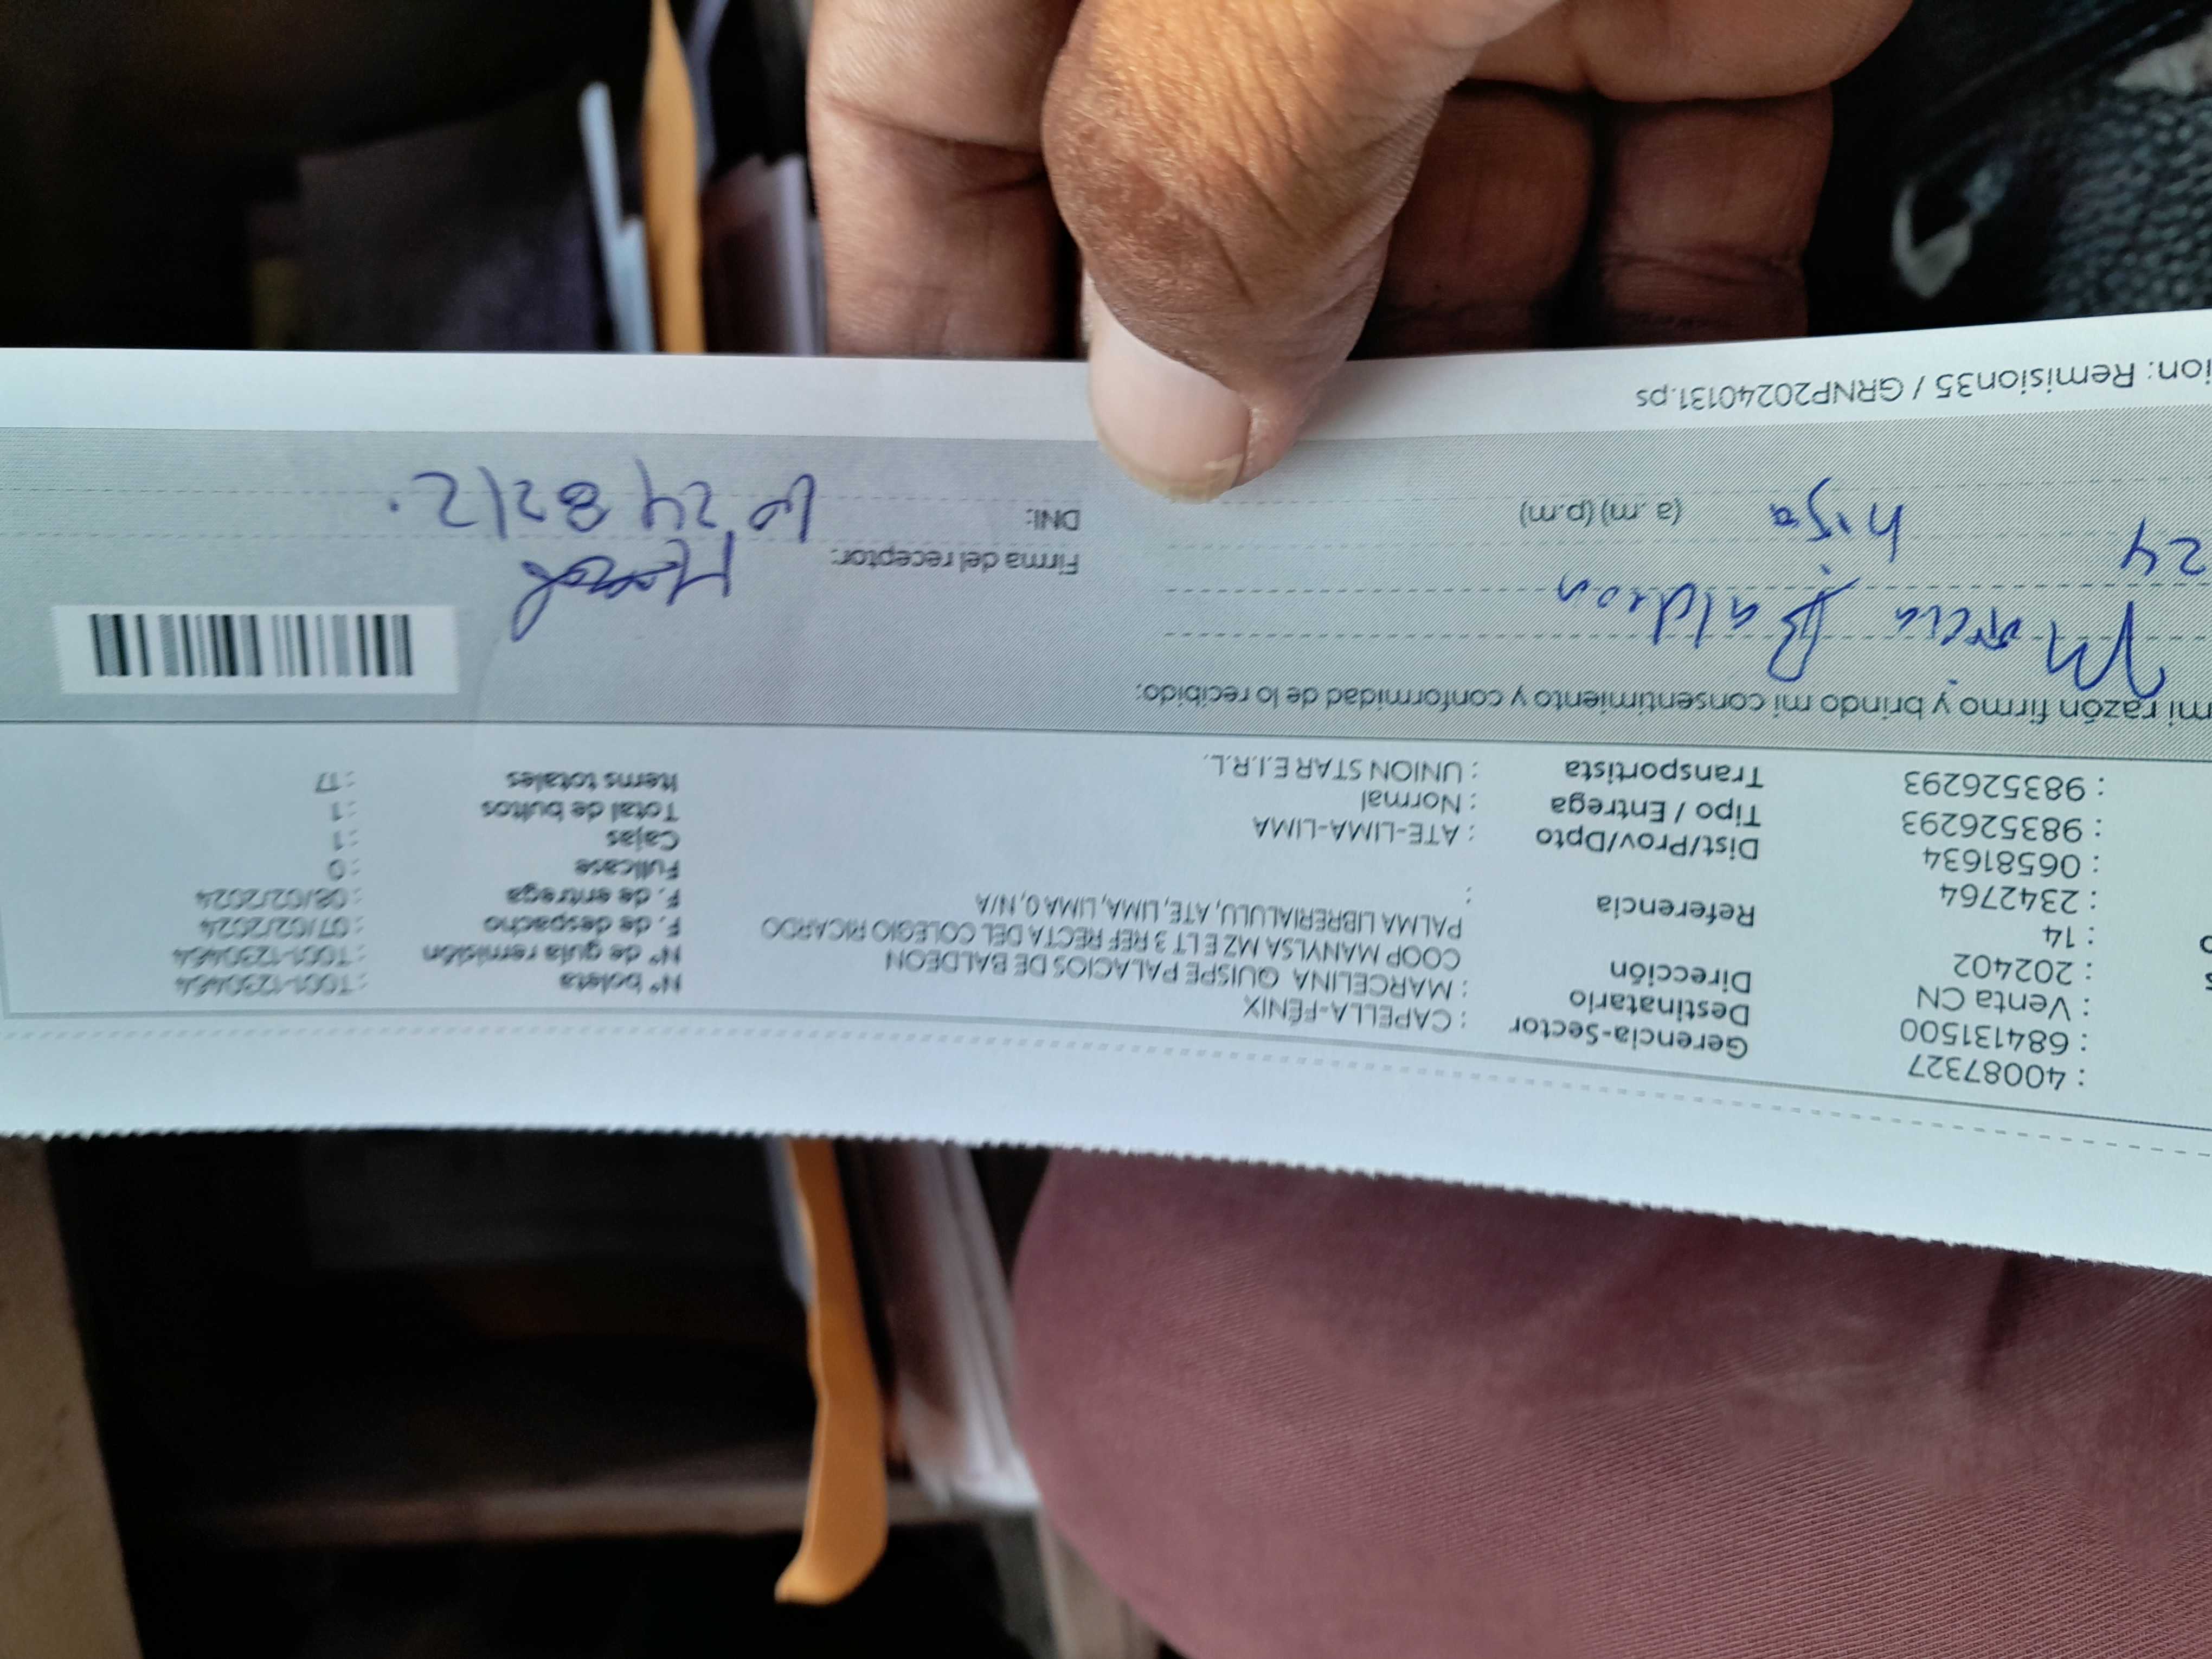 : 40087327
: 684131500
: Venta CN
: 202402
: 14
: 2342764
: 06581634
: 983526293
: 983526293
Gerencia-Sector : CAPELLA-FÉNIX
Destinatario : MARCELINA QUISPE PALACIOS DE BALDEON
Dirección COOP MANYLSA MZ E LT 3 REF RECTA DEL COLEGIO RICARDO
PALMA LIBRERIALULU, ATE, LIMA, LIMA 0, N/A
Referencia :
Dist/Prov/Dpto : ATE-LIMA-LIMA
Tipo / Entrega : Normal
Transportista : UNION STAR E.I.R.L.
N° boleta : T001-1230464
N° de guía remisión : T001-1230464
F. de despacho : 07/02/2024
F. de entrega : 08/02/2024
Fullcase : 0
Cajas : 1
Total de bultos : 1
Items totales : 17
mi razón firmo y brindo mi consentimiento y conformidad de lo recibido:
Baldeon
24 hija (a.m) (p.m)
Firma del receptor:
DNI:
ion: Remision35 / GRNP20240131.ps